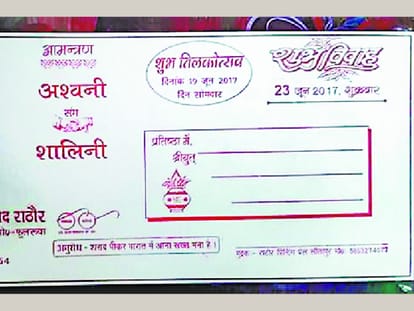 आमन्त्रण
अश्वनी
संग
शालिनी
शुभ तिलकोत्सव
दिनांक 19 जून 2017
दिन सोमवार
शुभ विवाह
23 जून 2017, शुक्रवार
प्रतिष्ठा में,
श्रीयुत्
राठौर
अनुरोध - शराब पीकर बारात में आना सख्त मना है !
मुद्रक - राठौर प्रिंटिंग प्रेस सीतापुर